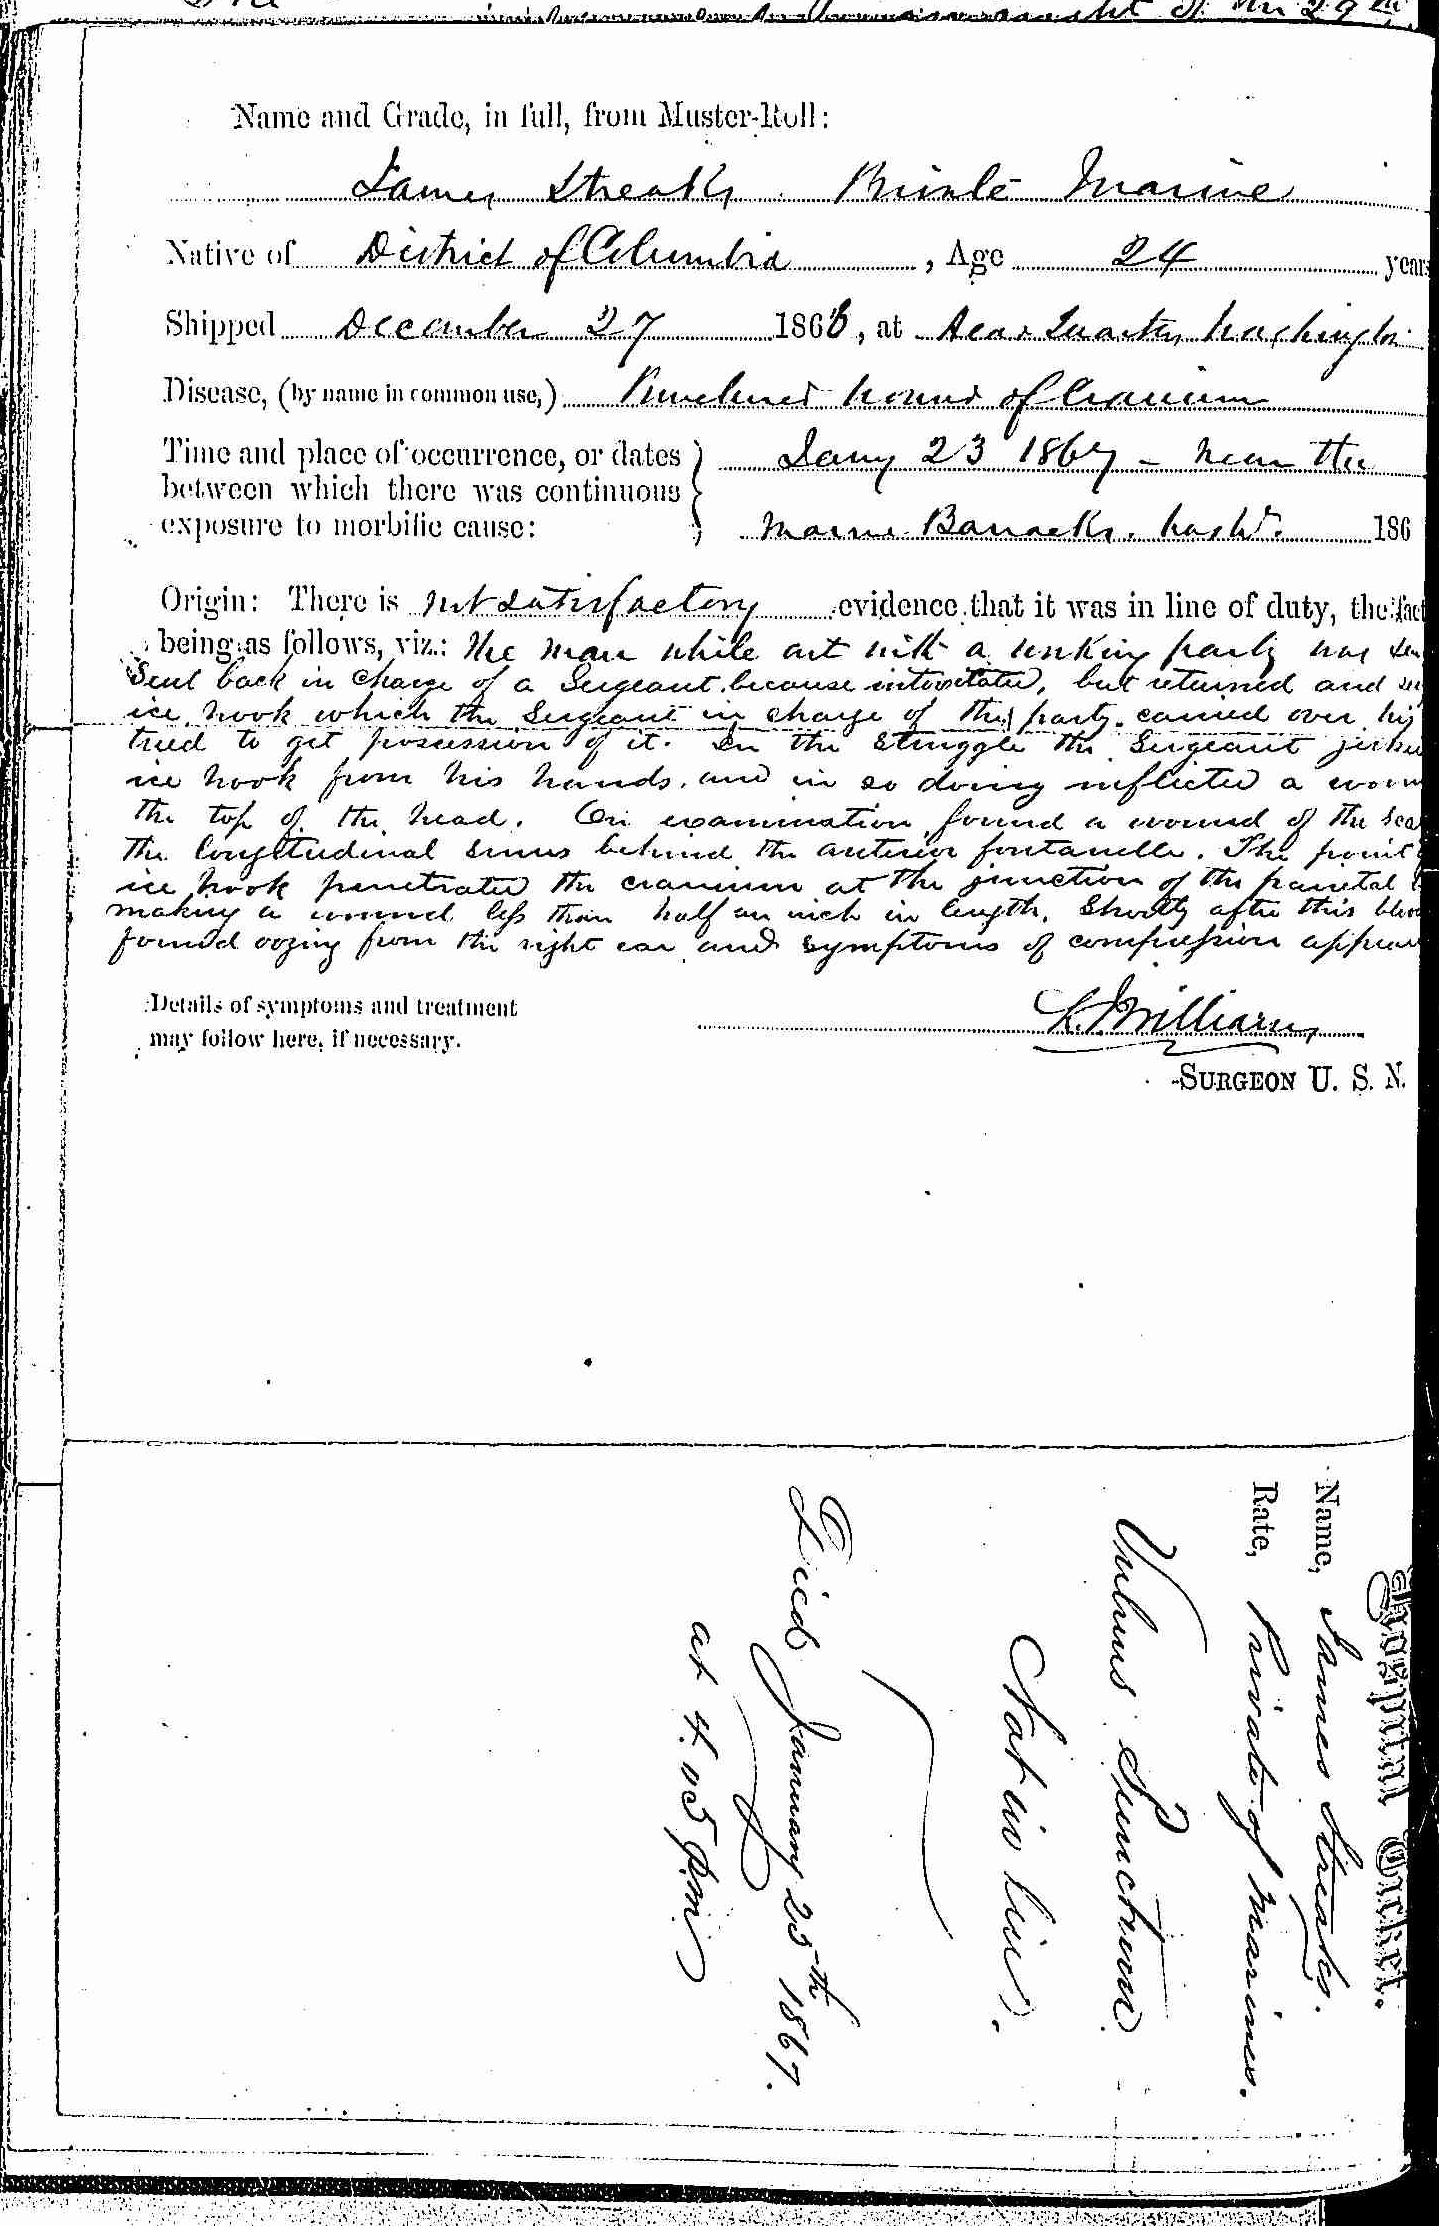 29th
Name and Grade, in full, from Muster-Roll:
James Streaks Private Marine
Native of District of Columbia, Age 24 years
Shipped December 27 1866, at Head Quarters Washington
Disease, (by name in common use,) Punctured wound of Cranium
Time and place of occurrence, or dates between which there was continuous exposure to morbific cause:
Jany 23 1867 - near the
Marine Barracks. Washn. 186
Origin: There is not satisfactory evidence that it was in line of duty, the fact
being as follows, viz.: The man while out with a working party was
Sent back in charge of a Sergeant because intoxicated, but returned and
ice hook which the Sergeant in charge of the party carried over his
tried to get possession of it. In the struggle the Sergeant jerked
ice hook from his hands, and in so doing inflicted a woun
the top of the head. On examination found a wound of the sca
the longitudinal sinus behind the anterior fontanelle. The point
ice hook penetrated the cranium at the junction of the parietal
making a wound less than half an inch in length. Shortly after this bloo
found oozing from the right ear and symptoms of compression appear
Details of symptoms and treatment
may follow here, if necessary.
L. J. Williams
SURGEON U. S. N.
Hospital Ticket.
Name, James Streaks.
Rate, Private of Marines.
Vulnus Punctum
Not in line.
Died January 25th 1867.
at 4.05 P.m.